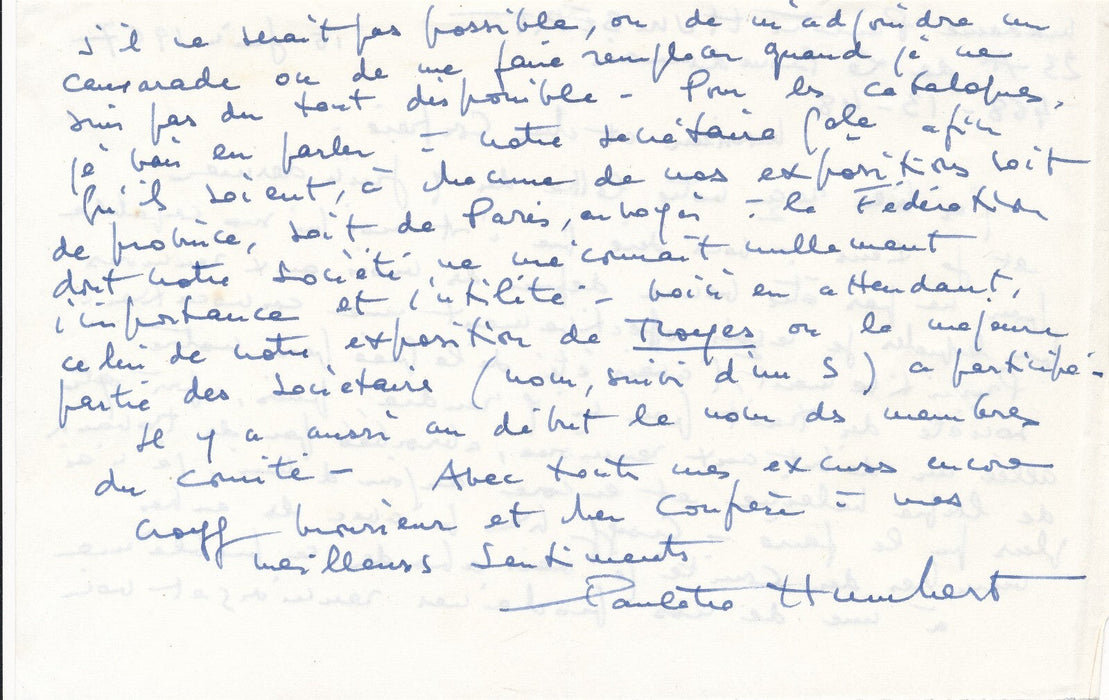 s'il ne serait pas possible, ou de m'adjoindre un
camarade ou de me faire remplacer quand je ne
suis pas du tout disponible - Pour les catalogues,
je vais en parler à notre secrétaire gale afin
qu'ils soient, à chacune de nos expositions soit
de province, soit de Paris, envoyés à la Fédération
dont notre Société ne méconnait nullement
l'importance et l'utilité - voici en attendant,
celui de notre exposition de Troyes ou la majeure
partie des Sociétaires (nom, suivi d'un S) a participé -
Il y a aussi au début le nom des membres
du Comité - Avec toutes mes excuses encore
croyez Monsieur et cher Confrère à mes
meilleurs sentiments
Paulette Humbert